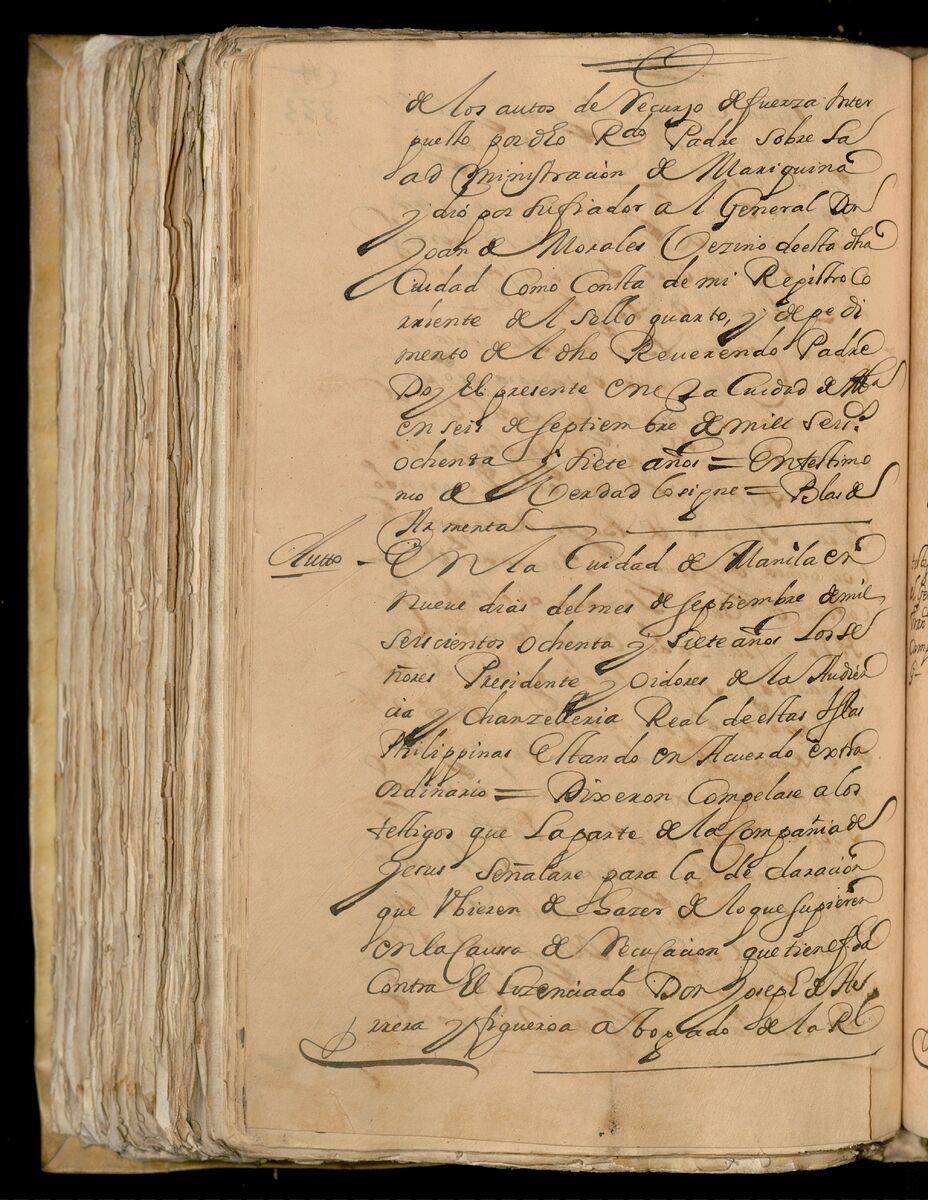 de los autos de recurso de fuerza inter
puesto por dho Rdo Padre sobre la
administracion de Mariquina
y dió por su fiador a l General Don
Joan de Morales Vezino de esta dha
Ciudad Como Consta de mi Registro Co
rriente de l sello quarto, y de pedi
mento de l dho Reuerendo Padre
Doy El presente en esta Cuidad de Mla
en seis de septiembre de mill seisc.s
ochenta y siete años = En testimo
nio de Verdad lo signe = Blas de
Armenta
Autto - En la Cuidad de Manila en
nueve dias del mes de septiembre de mil
seiscientos ochenta y siete años Los se
ñores Presidente y oidores de la Audien
cia y chanzelleria Real de estas Yslas
Philippinas Estando en Acuerdo extra
ordinario = Dixeron Compelase a los
testigos que La parte de la Compañia de
Jesus señalare para la declaracion
que Vbieren de Hazer de lo que supieren
en la Caussa de recusacion que tiene fha
Contra El Lizenciado Don Joseph de He
rrera y figueroa abogado de la Rl